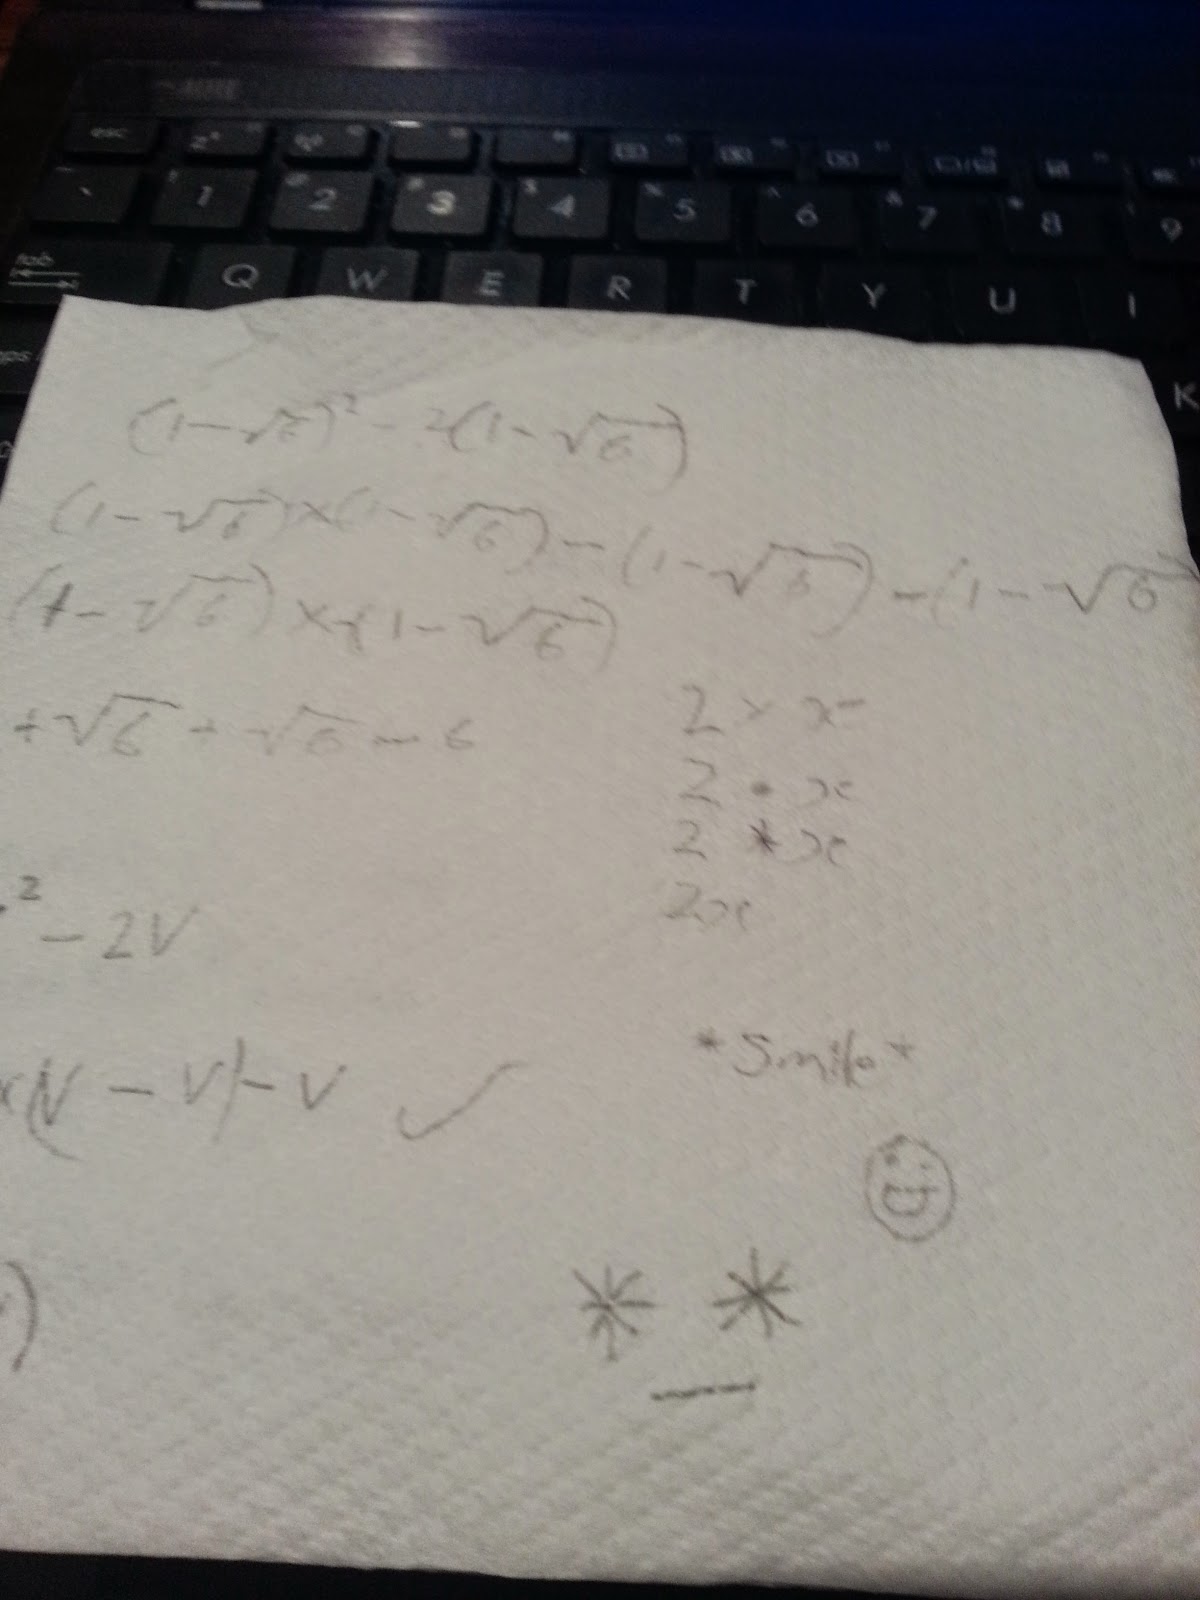 esc
1 2 3 4 5 6 7 8 9
tab Q W E R T Y U I
K
(1-√6)² - 2(1-√6)
(1-√6)×(1-√6)-(1-√6)-(1-√6
(1-√6)×-(1-√6)
+√6+√6-6
2 × x
2 • x
2 * x
2x
² - 2V
(V - V)-V ✓
*Smile*
)
* *
—